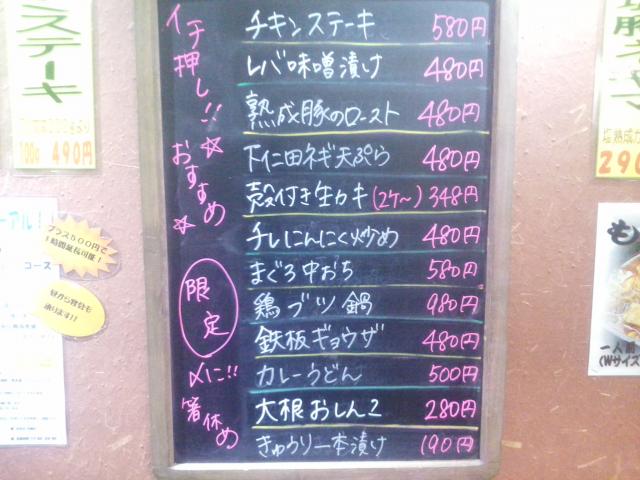 イチ押し!!
☆おすすめ☆
限定
〆に!!
箸休め
チキンステーキ 580円
レバ味噌漬け 480円
熟成豚のロースト 480円
下仁田ネギ天ぷら 480円
殻付き生カキ(2ケ〜) 348円
チレにんにく炒め 480円
まぐろ中おち 580円
鶏ブツ鍋 980円
鉄板ギョウザ 480円
カレーうどん 500円
大根おしんこ 280円
きゅうり一本漬け 190円
ンステーキ
100g 490円
プラス500円で
時間延長可能!
コース
昼から宴会も
承ります!!
塩熟成
290
も
一人前
(Wサイズ